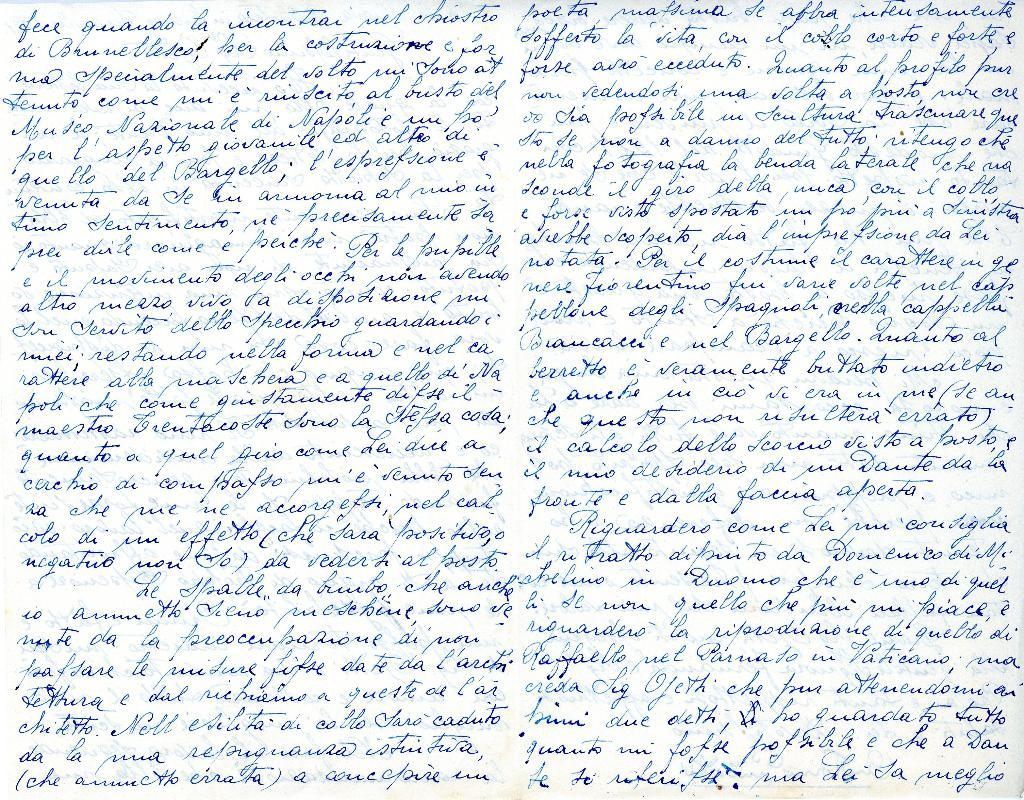 fece quando la incontrai nel chiostro
di Brunellesco, per la costruzione e for
ma specialmente del volto mi sono at
tenuto come mi è riuscito al busto del
Museo Nazionale di Napoli e un po'
per l'aspetto giovanile ed altro di
quello del Bargello; l'espressione è
venuta da se in armonia al mio in
timo sentimento, nè precisamente sa
prei dirle come e perchè. Per le pupille
e il movimento degli occhi non avendo
altro mezzo vivo a disposizione mi
son servito dello specchio guardando i
miei; restando nella forma e nel ca
rattere alla maschera e a quello di Na
poli che come giustamente disse il
maestro Trentacoste sono la stessa cosa;
quanto a quel giro come Lei dice a
cerchio di compasso mi è venuto sen
za che me ne accorgessi, nel cal
colo di un effetto (che sarà positivo, o
negativo non so) da vedersi al posto.
Le spalle "da bimbo" che anch'
io ammetto sieno meschine sono ve
nute da la preoccupazione di non
passare le misure fisse date da l'archi
tettura e dal richiamo a queste de l'ar
chitetto. Nell'esilità di collo sarò caduto
da la mia repugnanza istintiva,
(che ammetto errata) a concepire un
poeta massima se abbia intensamente
sofferto la vita, con il collo corto e forte, e
forse avrò ecceduto. Quanto al profilo pur
non vedendosi una volta a posto, non cre
do sia possibile in scultura trascurare que
sto se non a danno del tutto, ritengo che
nella fotografia la benda laterale che na
sconde il giro della nuca con il collo
e forse visto spostato un po' più a sinistra
avrebbe scoperto, dia l'impressione da Lei
notata. Per il costume il carattere in ge
nere fiorentino fui varie volte nel cap
pellone degli Spagnoli, nella cappella
Brancacci e nel Bargello. Quanto al
berretto è veramente buttato indietro
e anche in ciò vi era in me (se an
che questo non risulterà errato)
il calcolo dello scorcio visto a posto, e
il mio desiderio di un Dante da la
fronte e dalla faccia aperta.
Riguarderò come Lei mi consiglia
il ritratto dipinto da Domenico di Mi
chelino in Duomo che è uno di quel
li se non quello che più mi piace, e
riguarderò la riproduzione di quello di
Raffaello nel Parnaso in Vaticano; ma
creda Sig Ojetti che pur attenendomi ai
primi due detti, ho guardato tutto
quanto mi fosse possibile e che a Dan
te si riferisse: ma Lei sa meglio